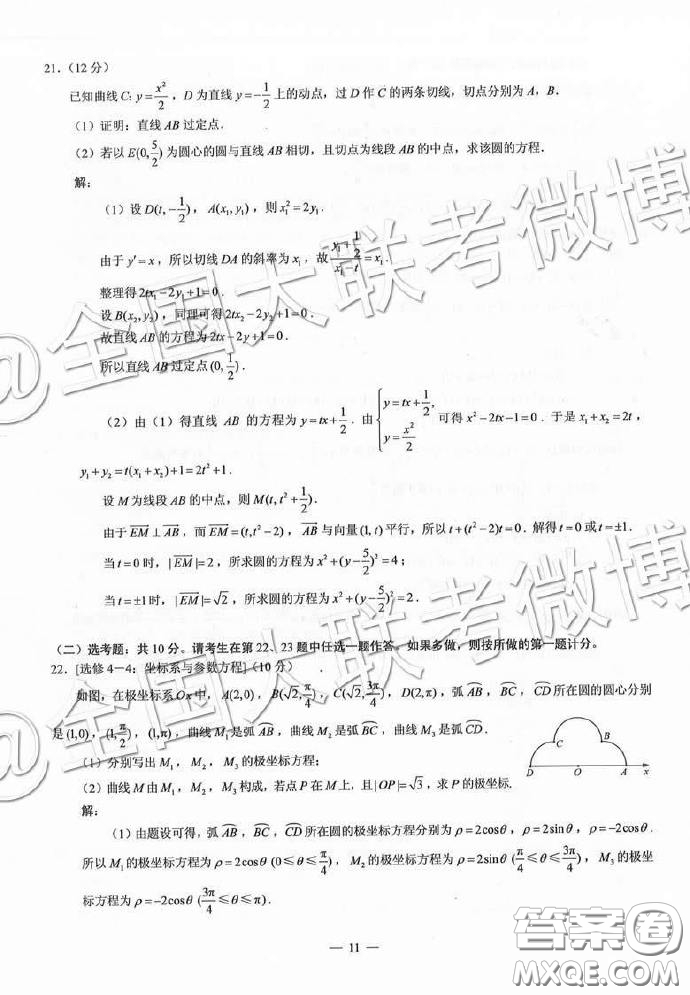 21．（12 分）
已知曲线 C: y=x²/2，D 为直线 y=−1/2 上的动点，过 D 作 C 的两条切线，切点分别为 A，B．
（1）证明：直线 AB 过定点．
（2）若以 E(0,5/2) 为圆心的圆与直线 AB 相切，且切点为线段 AB 的中点，求该圆的方程．
解：
（1）设 D(t,−1/2)，A(x₁,y₁)，则 x₁²=2y₁．
由于 y′=x，所以切线 DA 的斜率为 x₁，故 (y₁+1/2)/(x₁−t)=x₁．
整理得 2tx₁−2y₁+1=0．
设 B(x₂,y₂)，同理可得 2tx₂−2y₂+1=0．
故直线 AB 的方程为 2tx−2y+1=0．
所以直线 AB 过定点 (0,1/2)．
（2）由（1）得直线 AB 的方程为 y=tx+1/2．由 {y=tx+1/2, y=x²/2 可得 x²−2tx−1=0．于是 x₁+x₂=2t，
y₁+y₂=t(x₁+x₂)+1=2t²+1．
设 M 为线段 AB 的中点，则 M(t,t²+1/2)．
由于 EM⊥AB，而 EM=(t,t²−2)，AB 与向量 (1,t) 平行，所以 t+(t²−2)t=0．解得 t=0 或 t=±1．
当 t=0 时，|EM|=2，所求圆的方程为 x²+(y−5/2)²=4；
当 t=±1 时，|EM|=√2，所求圆的方程为 x²+(y−5/2)²=2．
（二）选考题：共 10 分。请考生在第 22、23 题中任选一题作答。如果多做，则按所做的第一题计分。
22．[选修 4－4：坐标系与参数方程]（10 分）
如图，在极坐标系 Ox 中，A(2,0)，B(√2,π/4)，C(√2,3π/4)，D(2,π)，弧 AB，BC，CD 所在圆的圆心分别
是 (1,0)，(1,π/2)，(1,π)，曲线 M₁ 是弧 AB，曲线 M₂ 是弧 BC，曲线 M₃ 是弧 CD．
（1）分别写出 M₁，M₂，M₃ 的极坐标方程；
（2）曲线 M 由 M₁，M₂，M₃ 构成，若点 P 在 M 上，且 |OP|=√3，求 P 的极坐标．
C B
D O A x
解：
（1）由题设可得，弧 AB，BC，CD 所在圆的极坐标方程分别为 ρ=2cosθ，ρ=2sinθ，ρ=−2cosθ．
所以 M₁ 的极坐标方程为 ρ=2cosθ (0≤θ≤π/4)，M₂ 的极坐标方程为 ρ=2sinθ (π/4≤θ≤3π/4)，M₃ 的极坐
标方程为 ρ=−2cosθ (3π/4≤θ≤π)．
— 11 —
@全国大联考微博
@全国大联考微博
答案卷
MXQE.COM